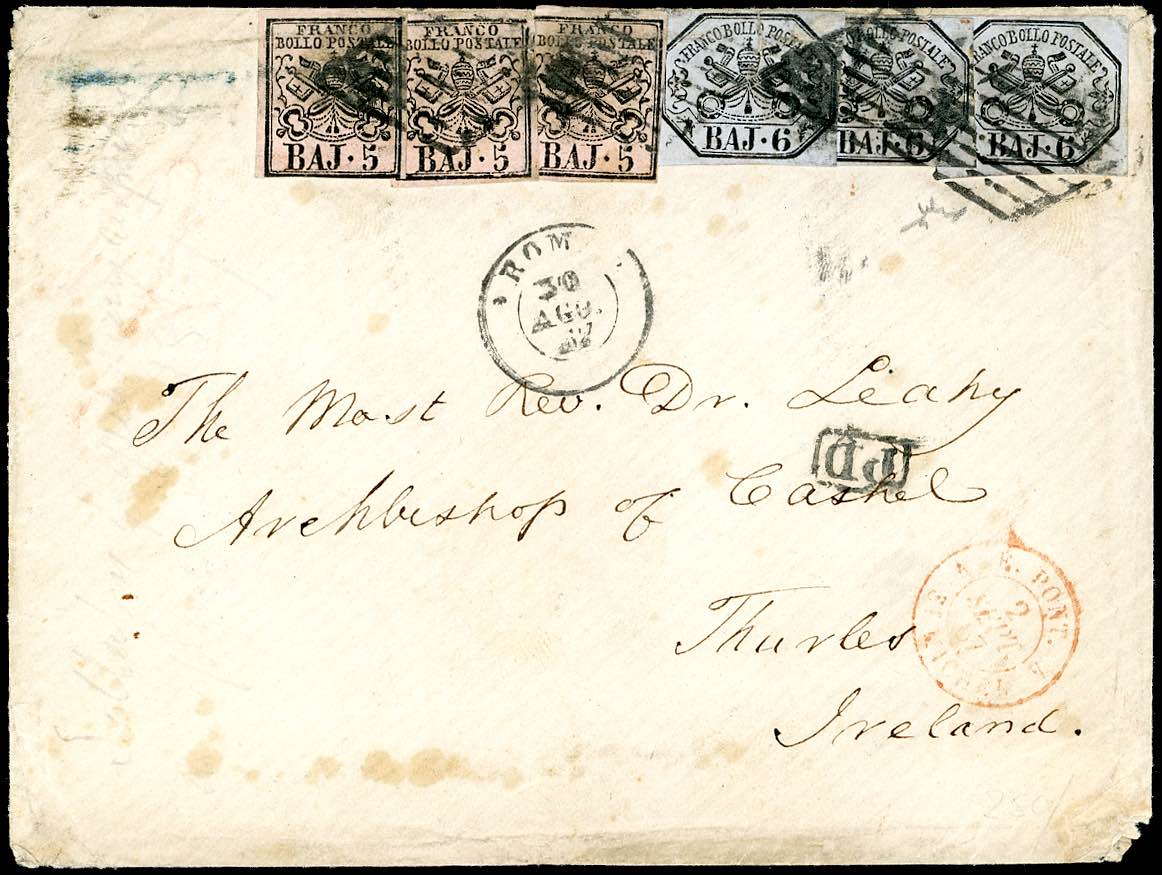 FRANCO
BOLLO POSTALE
BAJ·5
FRANCO
BOLLO POSTALE
BAJ·5
FRANCO
BOLLO POSTALE
BAJ·5
FRANCO BOLLO POSTALE
BAJ·6
BAJ·6
FRANCO BOLLO POSTALE
BAJ·6
ROM
30
AGO.
The Most Rev. Dr. Leahy
PD
Archbishop of Cashel
Thurles
Ireland.
E. PONT.
2
SEPT.